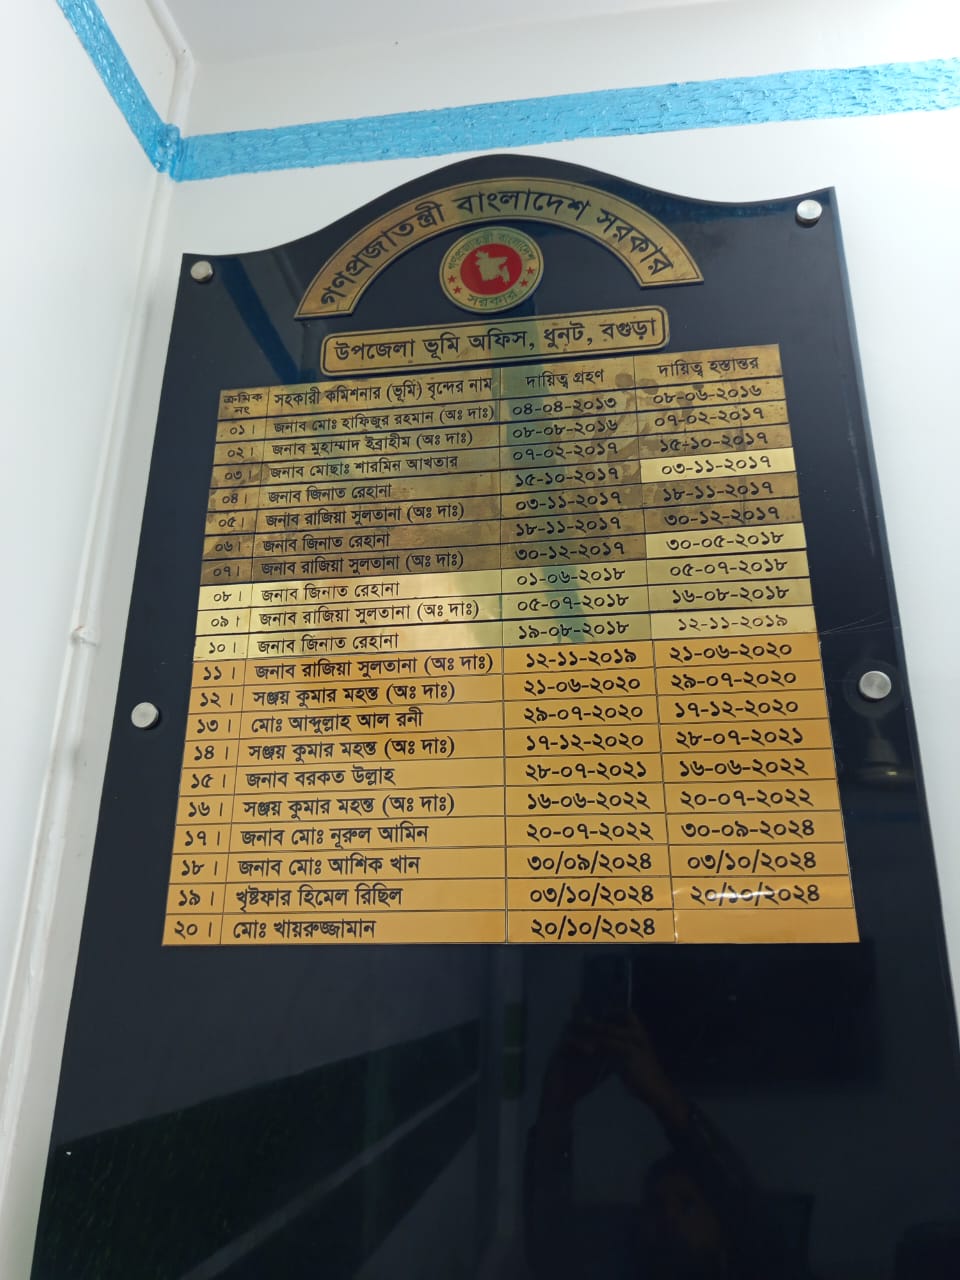 গণপ্রজাতন্ত্রী বাংলাদেশ সরকার
গণপ্রজাতন্ত্রী বাংলাদেশ
সরকার
উপজেলা ভূমি অফিস, ধুনট, বগুড়া
ক্রমিক নং সহকারী কমিশনার (ভূমি) বৃন্দের নাম দায়িত্ব গ্রহণ দায়িত্ব হস্তান্তর
০১। জনাব মোঃ হাফিজুর রহমান (অঃ দাঃ) ০৪-০৪-২০১৩ ০৮-০৬-২০১৬
০২। জনাব মুহাম্মাদ ইব্রাহীম (অঃ দাঃ) ০৮-০৮-২০১৬ ০৭-০২-২০১৭
০৩। জনাব মোছাঃ শারমিন আখতার ০৭-০২-২০১৭ ১৫-১০-২০১৭
০৪। জনাব জিনাত রেহানা ১৫-১০-২০১৭ ০৩-১১-২০১৭
০৫। জনাব রাজিয়া সুলতানা (অঃ দাঃ) ০৩-১১-২০১৭ ১৮-১১-২০১৭
০৬। জনাব জিনাত রেহানা ১৮-১১-২০১৭ ৩০-১২-২০১৭
০৭। জনাব রাজিয়া সুলতানা (অঃ দাঃ) ৩০-১২-২০১৭ ৩০-০৫-২০১৮
০৮। জনাব জিনাত রেহানা ০১-০৬-২০১৮ ০৫-০৭-২০১৮
০৯। জনাব রাজিয়া সুলতানা (অঃ দাঃ) ০৫-০৭-২০১৮ ১৬-০৮-২০১৮
১০। জনাব জিনাত রেহানা ১৯-০৮-২০১৮ ১২-১১-২০১৯
১১। জনাব রাজিয়া সুলতানা (অঃ দাঃ) ১২-১১-২০১৯ ২১-০৬-২০২০
১২। সঞ্জয় কুমার মহন্ত (অঃ দাঃ) ২১-০৬-২০২০ ২৯-০৭-২০২০
১৩। মোঃ আব্দুল্লাহ আল রনী ২৯-০৭-২০২০ ১৭-১২-২০২০
১৪। সঞ্জয় কুমার মহন্ত (অঃ দাঃ) ১৭-১২-২০২০ ২৮-০৭-২০২১
১৫। জনাব বরকত উল্লাহ ২৮-০৭-২০২১ ১৬-০৬-২০২২
১৬। সঞ্জয় কুমার মহন্ত (অঃ দাঃ) ১৬-০৬-২০২২ ২০-০৭-২০২২
১৭। জনাব মোঃ নূরুল আমিন ২০-০৭-২০২২ ৩০-০৯-২০২৪
১৮। জনাব মোঃ আশিক খান ৩০/০৯/২০২৪ ০৩/১০/২০২৪
১৯। খৃষ্টফার হিমেল রিছিল ০৩/১০/২০২৪ ২০/১০/২০২৪
২০। মোঃ খায়রুজ্জামান ২০/১০/২০২৪